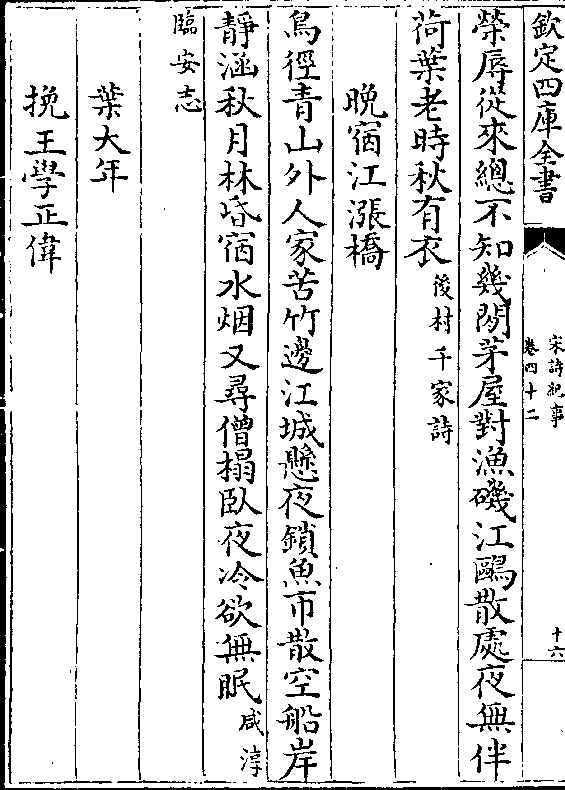 欽定四庫全書
宋詩紀事
卷四十二
十六
榮辱從來總不知幾間茅屋對漁磯江鷗散處夜無伴
荷葉老時秋有衣後村千家詩
晚宿江漲橋
鳥徑青山外人家苦竹邊江城懸夜鎖魚市散空船岸
靜涵秋月林昏宿水烟又尋僧榻臥夜冷欲無眠咸淳
臨安志
葉大年
挽王學正偉